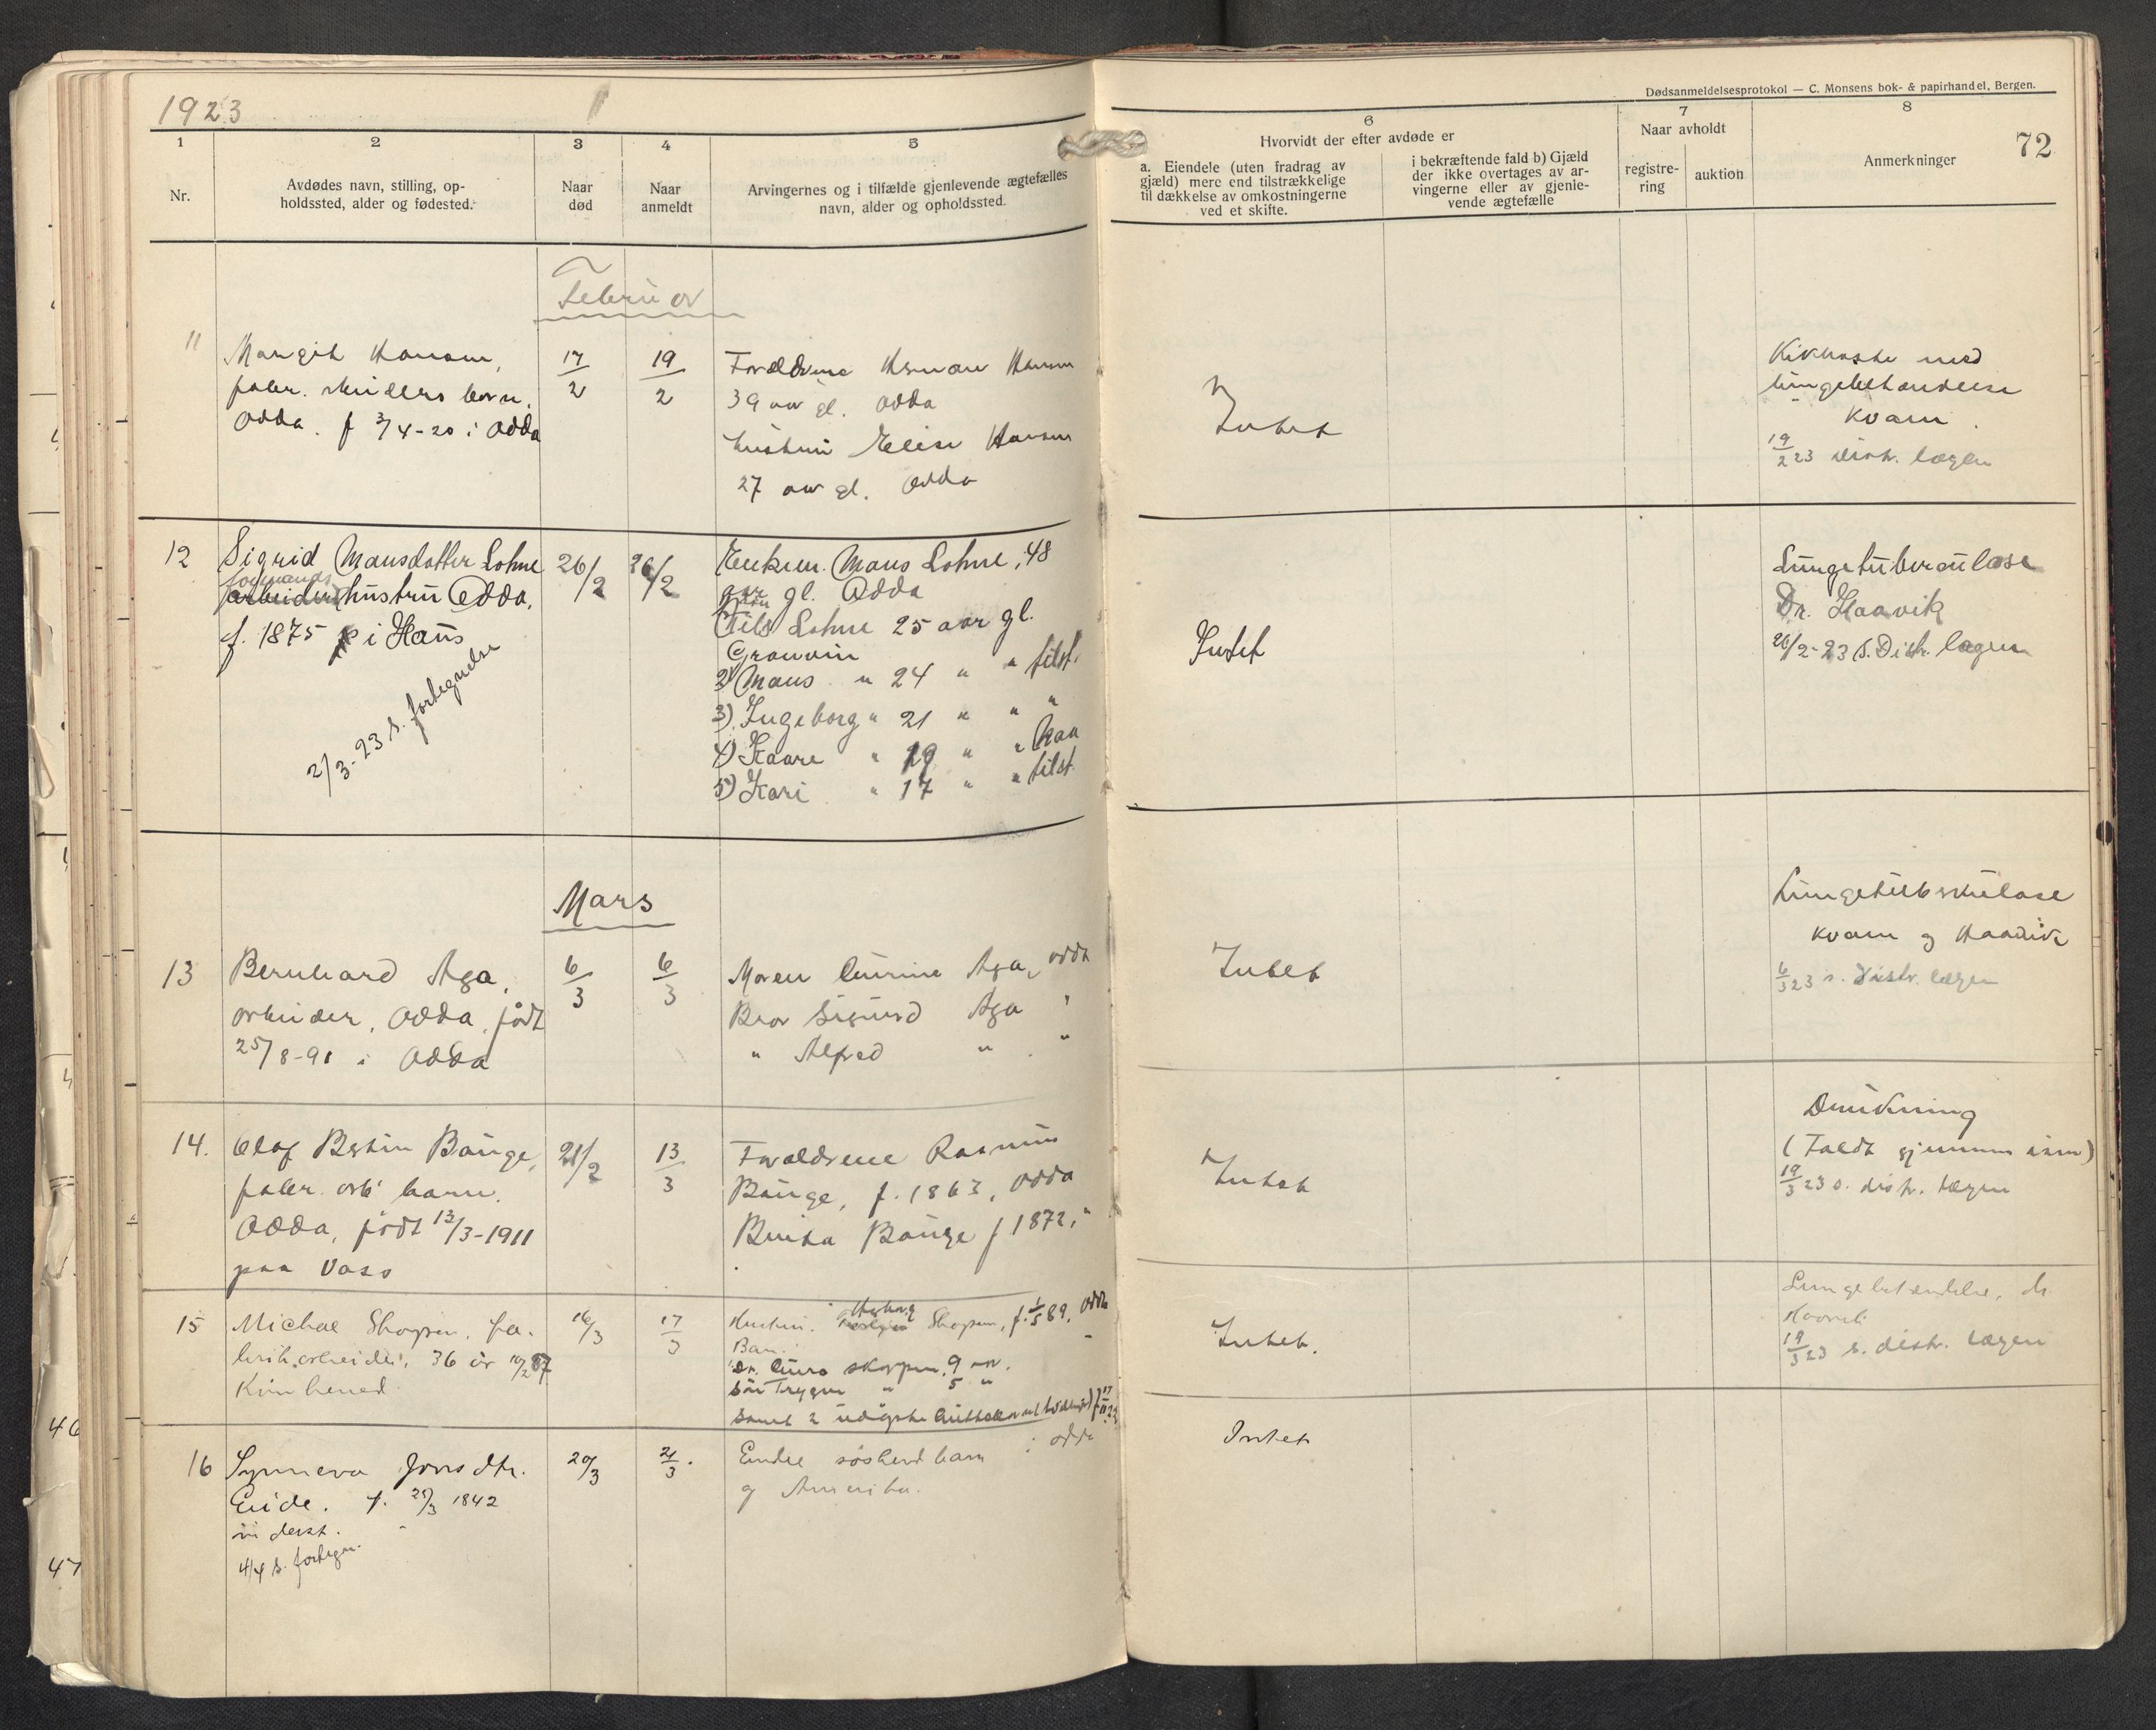 1923
Dødsanmeldelsesprotokol — C. Monsens bok- & papirhandel, Bergen.
72
1
2
3
4
5
6
7
8
Nr.
Avdødes navn, stilling, op-
holdssted, alder og fødested.
Naar
død
Naar
anmeldt
Arvingernes og i tilfælde gjenlevende ægtefælles
navn, alder og opholdssted.
Hvorvidt der efter avdøde er
a. Eiendele (uten fradrag av
gjæld) mere end tilstrækkelige
til dækkelse av omkostningerne
ved et skifte.
i bekræftende fald b) Gjæld
der ikke overtages av ar-
vingerne eller av gjenle-
vende ægtefælle
Naar avholdt
registre-
ring
auktion
Anmerkninger
Februar
11
Margit Hansen,
fabr. barn,
Odda. f 3/4-20 i Odda
17/2
19/2
Forældrene Herman Hansen
39 aar gl. Odda
hustru Elise Hansen
27 aar gl. Odda
Intet
Kikhoste med
Kvam
19/2 23 distr. lægen
12
Sigrid Mansdatter Lohne
formands
arbeider hustru Odda,
f. 1875 i Haus
2/3-23 s. fortegnelse
26/2
26/2
Enkem. Mans Lohne, 48
aar gl. Odda
Barn
Nils Lohne 25 aar gl.
Granvin
2) Mans " 24 " " tilst.
3) Ingeborg " 21 " " "
4) Kaare " 19 " "
5) Kari " 17 " " tilst.
Intet
Lungetuberculose
Dr. Haavik
26/2-23 s. Distr. lægen
Mars
13
Bernhard Aga,
arbeider, Odda, født
25/8-91 i Odda
6/3
6/3
Moren Aga, Odda
Bror Sigurd Aga "
" Alfred " "
Intet
Lungetuberkulose
Kvam og Haavik
6/3 23 s. distr. lægen
14.
Olaf Bauge,
fabr. arb. barn.
Odda, født 13/3-1911
paa Voss
21/2
13/3
Forældrene Rasmus
Bauge, f. 1863, Odda
Bauge f 1872, "
Intet
Drukning
(Faldt gjennem isen)
19/3 23 s. distr. lægen
15
Michael Skorpen, fa-
brikarbeider, 36 år
Kinn herred
16/3
17/3
Hustru. Skorpen, f. 1/5 89, Odda
Barn:
Skorpen, 9 aar.
Søn Trygve " 5 "
samt 2
Intet.
Lungebetændelse, dr
Haavik
19/3 23 s. distr. lægen
16
Synneva Jonsdtr.
Eide. f. 1842
4/4 s. fortegn.
20/3
21/3.
Endel søskend barn i Odda
og Amerika.
Intet